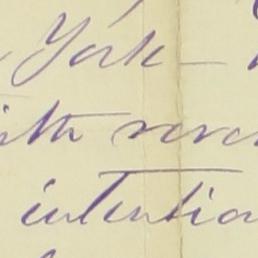 York —
ith never
intentio